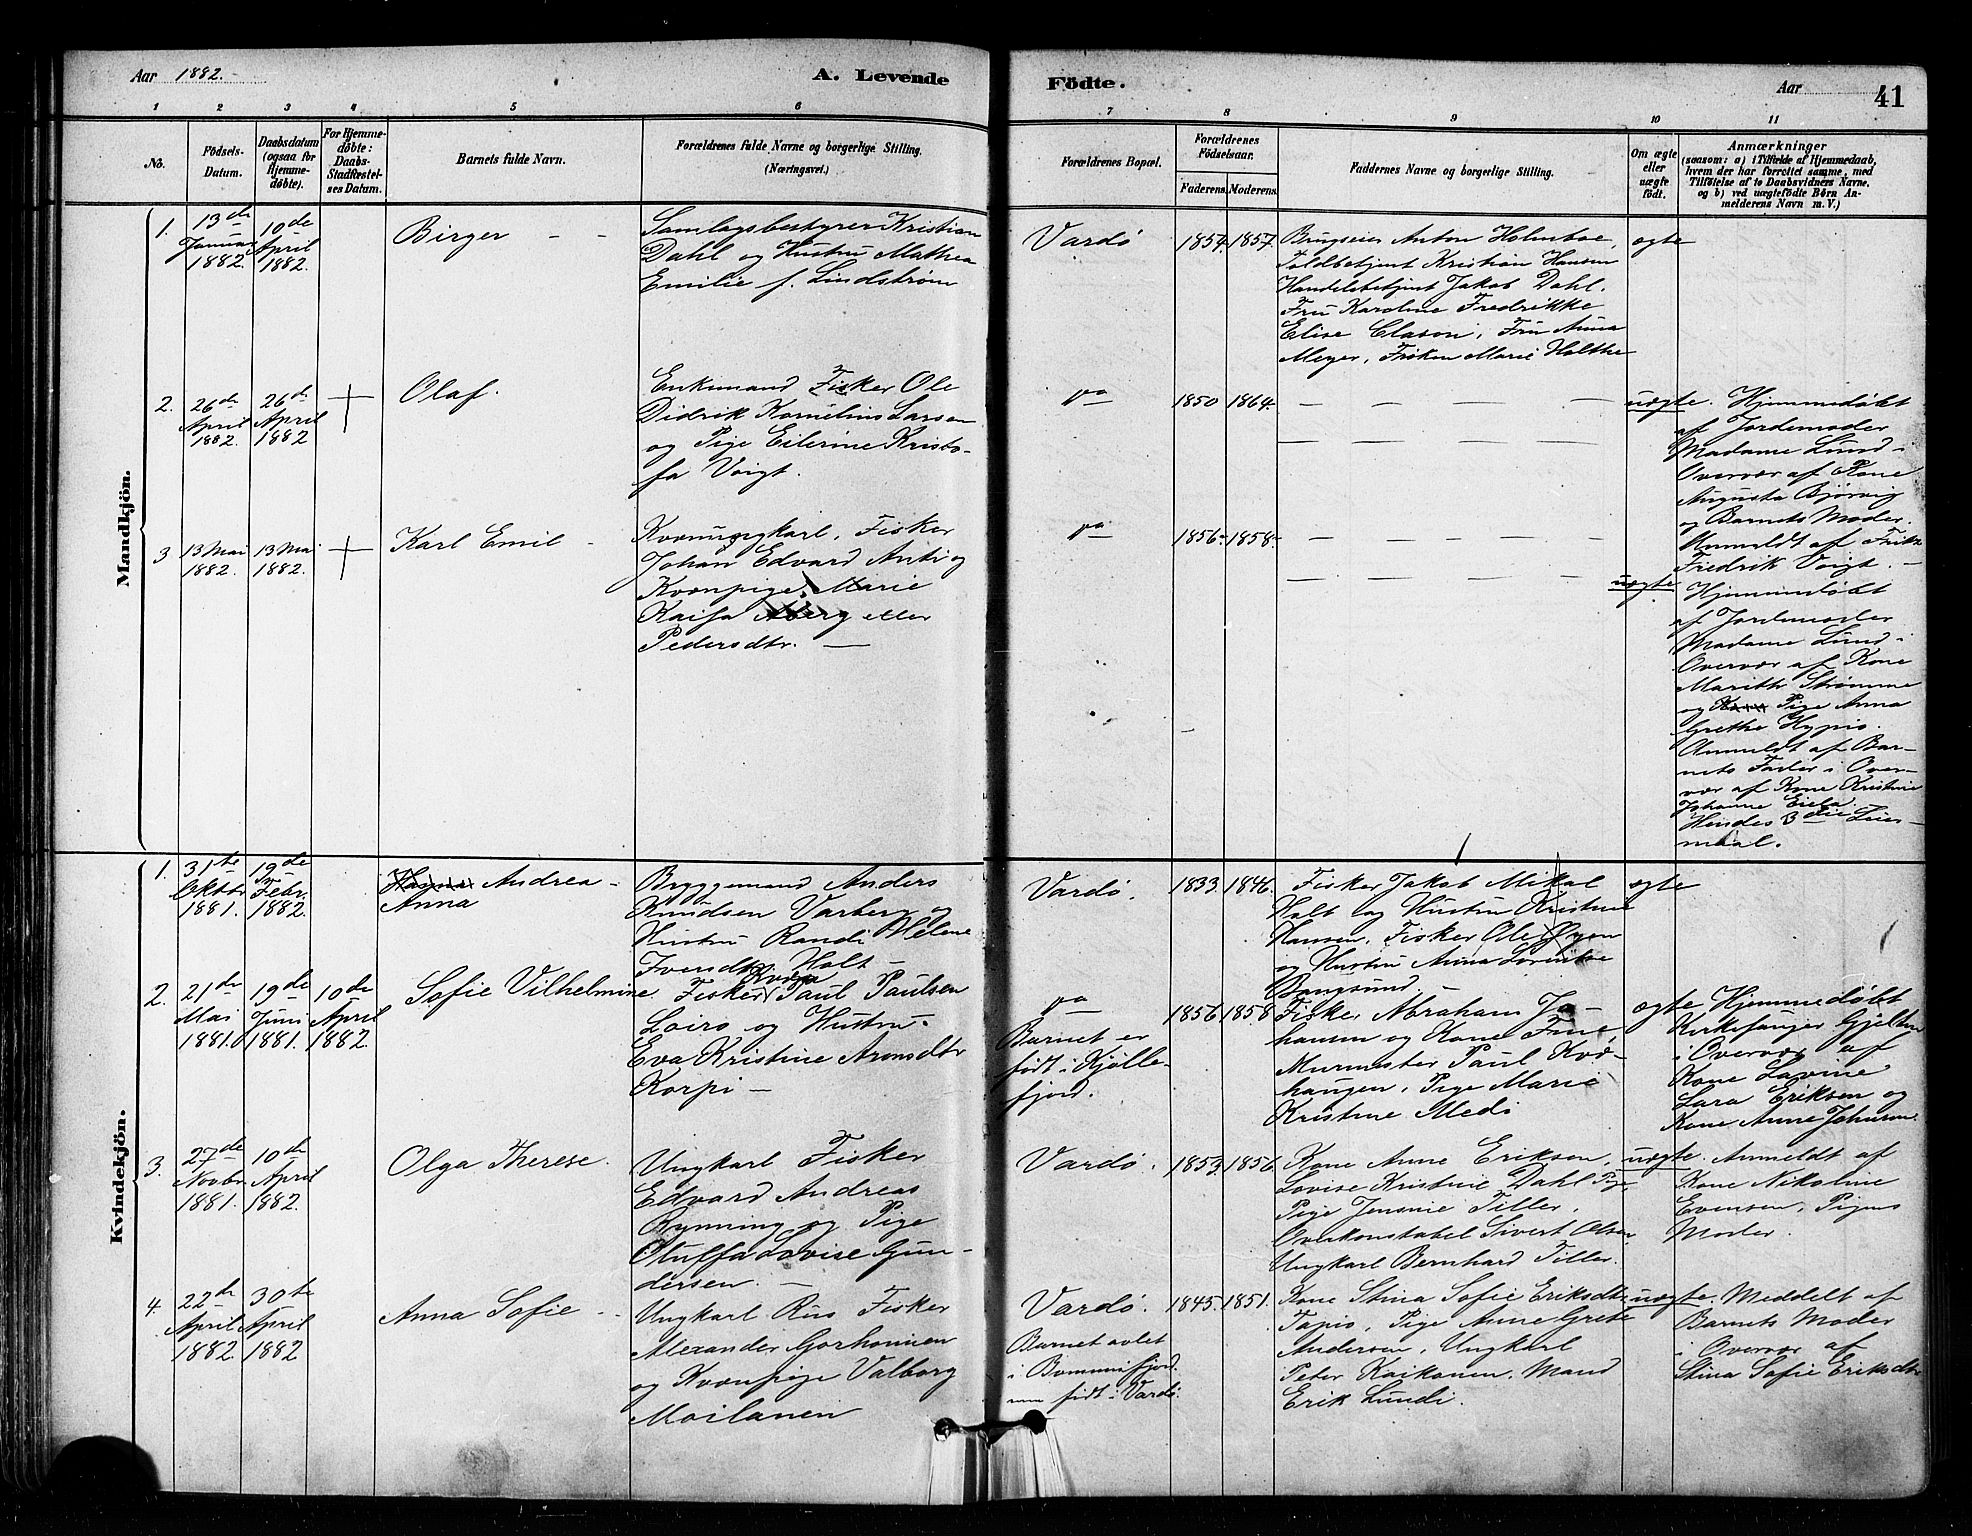 Aar 1882.
A. Levende
Födte.
Aar
41
1 2 3 4 5 6 7 8 9 10 11
No.
Födsels-
Datum.
Daabsdatum
(ogsaa for
Hjemme-
döbte).
For Hjemme-
döbte:
Daabs-
Stadfæstel-
ses Datum.
Barnets fulde Navn.
Forældrenes fulde Navne og borgerlige Stilling.
(Næringsvei.)
Forældrenes Bopæl.
Forældrenes
Födselsaar.
Faderens. Moderens.
Faddernes Navne og borgerlige Stilling.
Om ægte
eller
uægte
födt.
Anmærkninger
(saasom: a) i Tilfælde af Hjemmedaab,
hvem der har forrettet samme, med
Tilföielse af to Daabsvidners Navne.
og b) ved uægtefödte Börn An-
melderens Navn m. V.)
Mandkjön.
1.
13de
Januar
1882.
10de
April
1882.
Birger
Samlagsbestyrer Kristian
Dahl og Hustru Mathea
Emilie f. Lindstrøm
Vardø
1854. 1857.
Brugseier Anton Holmboe,
Toldbetjent Kristian Hansen
Handelsbetjent Jakob Dahl.
Fru Karoline Fredrikke
Elise Clason, Fru Anna
Meyer, Frøken Marie Holthe
ægte
2.
26de
April
1882.
26de
April
1882
Olaf.
Enkemand Fisker Ole
Didrik Kornelius Larsen
og Pige Eilerine Kristo-
fa Voigt.
1850 1864.
uægte.
Hjemmedøbt
af Jordemoder
Madame Lund i
Overvær af Kone
Augusta Bjørvig
og Barnets Moder.
Anmeldt af
Fredrik Voigt.
3
13 Mai
1882.
13 Mai
1882.
Karl Emil
Fisker
Johan Edvard Anti og
Kvænpige Marie
Kaisa eller
Pedersdtr.
1856 1858
uægte
Hjemmedøbt
af Jordemoder
Madame Lund i
Overvær af Kone
Marith Strømme
og Pige Anna
Grethe Hypio.
Anmeldt af Bar-
nets Fader i Over-
vær af Kone Kristine
Johanne Eiela.
Hendes 3die Leier-
maal.
Kvindekjön.
1.
31te
Oktbr
1881.
19de
Febr.
1882.
Andrea
Anna
Bryggemand Anders
Knudsen Varberg og
Hustru Randi Helene
Iversdtr. Holt
Vardø.
1833. 1846.
Fisker Jakob Mikal
Holt og Hustru Kristine
Hansen, Fisker Ole Øyen
og Hustru Anna
Bangsund.
ægte
2.
21de
Mai
1881.
19de
Juni
1881.
10de
April
1882.
Sofie Vilhelmine
Fisker Kvæn Paul Paulsen
Loiro og Hustru
Eva Kristine Aronsdtr
Korpi
Barnet er
født i Kjølle-
fjord.
1856 1858
Fisker Abraham Jo-
hansen og Kone Trine,
Murmester Paul Kvæ-
haugen, Pige Marie
Kristine Medi
ægte
Hjemmedøbt
Kirkesanger
i Overvær af
Kone Lovine
Lara Eriksen og
Kone Anne
3.
27de
Novbr
1881.
10de
April
1882.
Olga Therese.
Ungkarl Fisker
Edvard Andreas
Rynning og Pige
Lovise Gun-
dersen.
Vardø.
1853. 1856.
Kone Anne Eriksen,
Lovise Kristine Dahl Pige
Pige Jensine Tiller.
Overkonstabel Sivert Olsen,
Ungkarl Bernhard Tiller.
uægte.
Anmeldt af
Kone Nikoline
Evensen, Pigens
Moder.
4.
22de
April
1882.
30te
April
1882
Anna Sofie
Ungkarl Rus Fisker
Alexander Gorhonnien
og Kvænpige Valborg
Moilanen
Vardø.
Barnet avlet
i Bommenifjord
men født i Vardø.
1845. 1851.
Kone Stina Sofie Eriksdtr
Tapio, Pige Anne Grete
Andersen, Ungkarl
Peter Kaikonen, Mand
Erik Lundi.
uægte.
Meddelt af
Barnets Moder
i Overvær af
Stina Sofie Eriksdtr